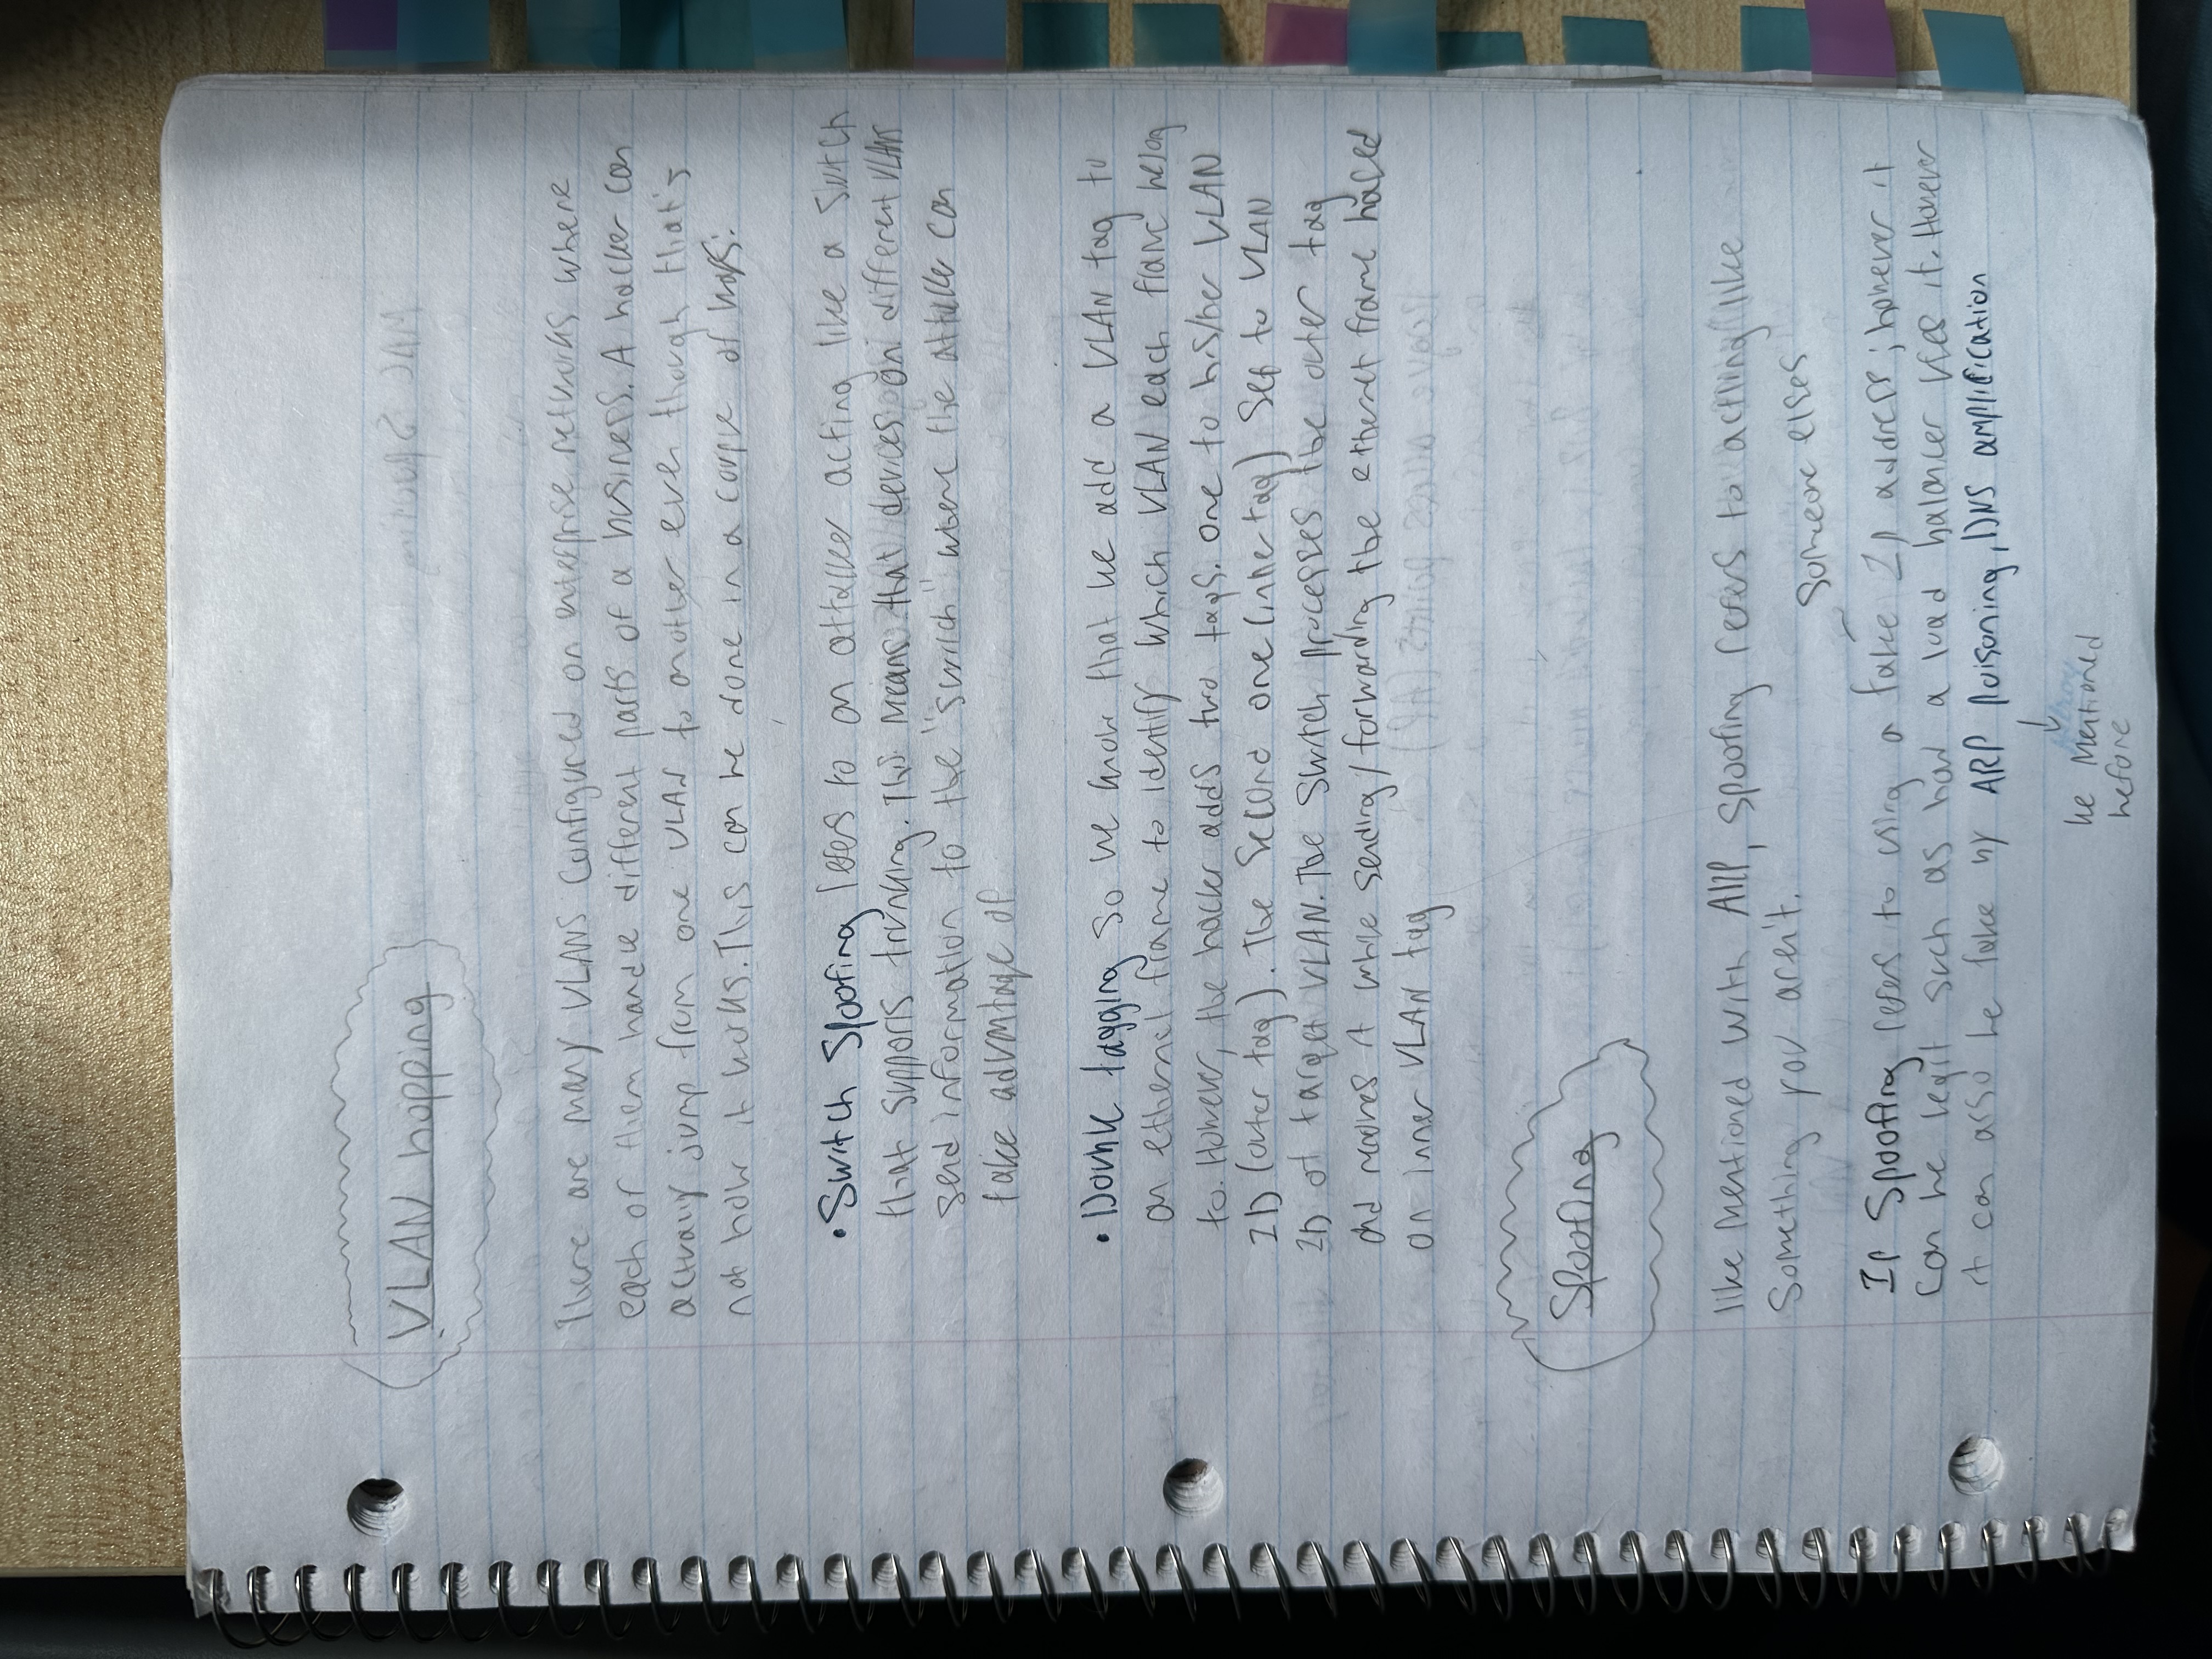 VLAN hopping
There are many VLANS configured on enterprise networks where
each of them handle different parts of a business. A hacker can
actually jump from one VLAN to another even though that's
not how it works. This can be done in a couple of ways:
• Switch Spoofing refers to an attacker acting like a switch
that supports trunking. This means that devices on different VLANS
send information to the "switch" where the attacker can
take advantage of
• Double tagging so we know that we add a VLAN tag to
an ethernet frame to identify which VLAN each frame belong
to. However, the hacker adds two tags. one to his/her VLAN
ID (outer tag). The second one (inner tag) set to VLAN
ID of target VLAN. The switch processes the outer tag
and removes it while sending/forwarding the ethernet frame based
on inner VLAN tag
Spoofing
like mentioned with ARP, spoofing refers to actiing like
something you aren't.
someone elses
IP Spoofing refers to using a fake IP address; however it
can be legit such as how a load balancer uses it. However
it can also be fake by ARP poisoning, DNS amplification
we mentioned
before